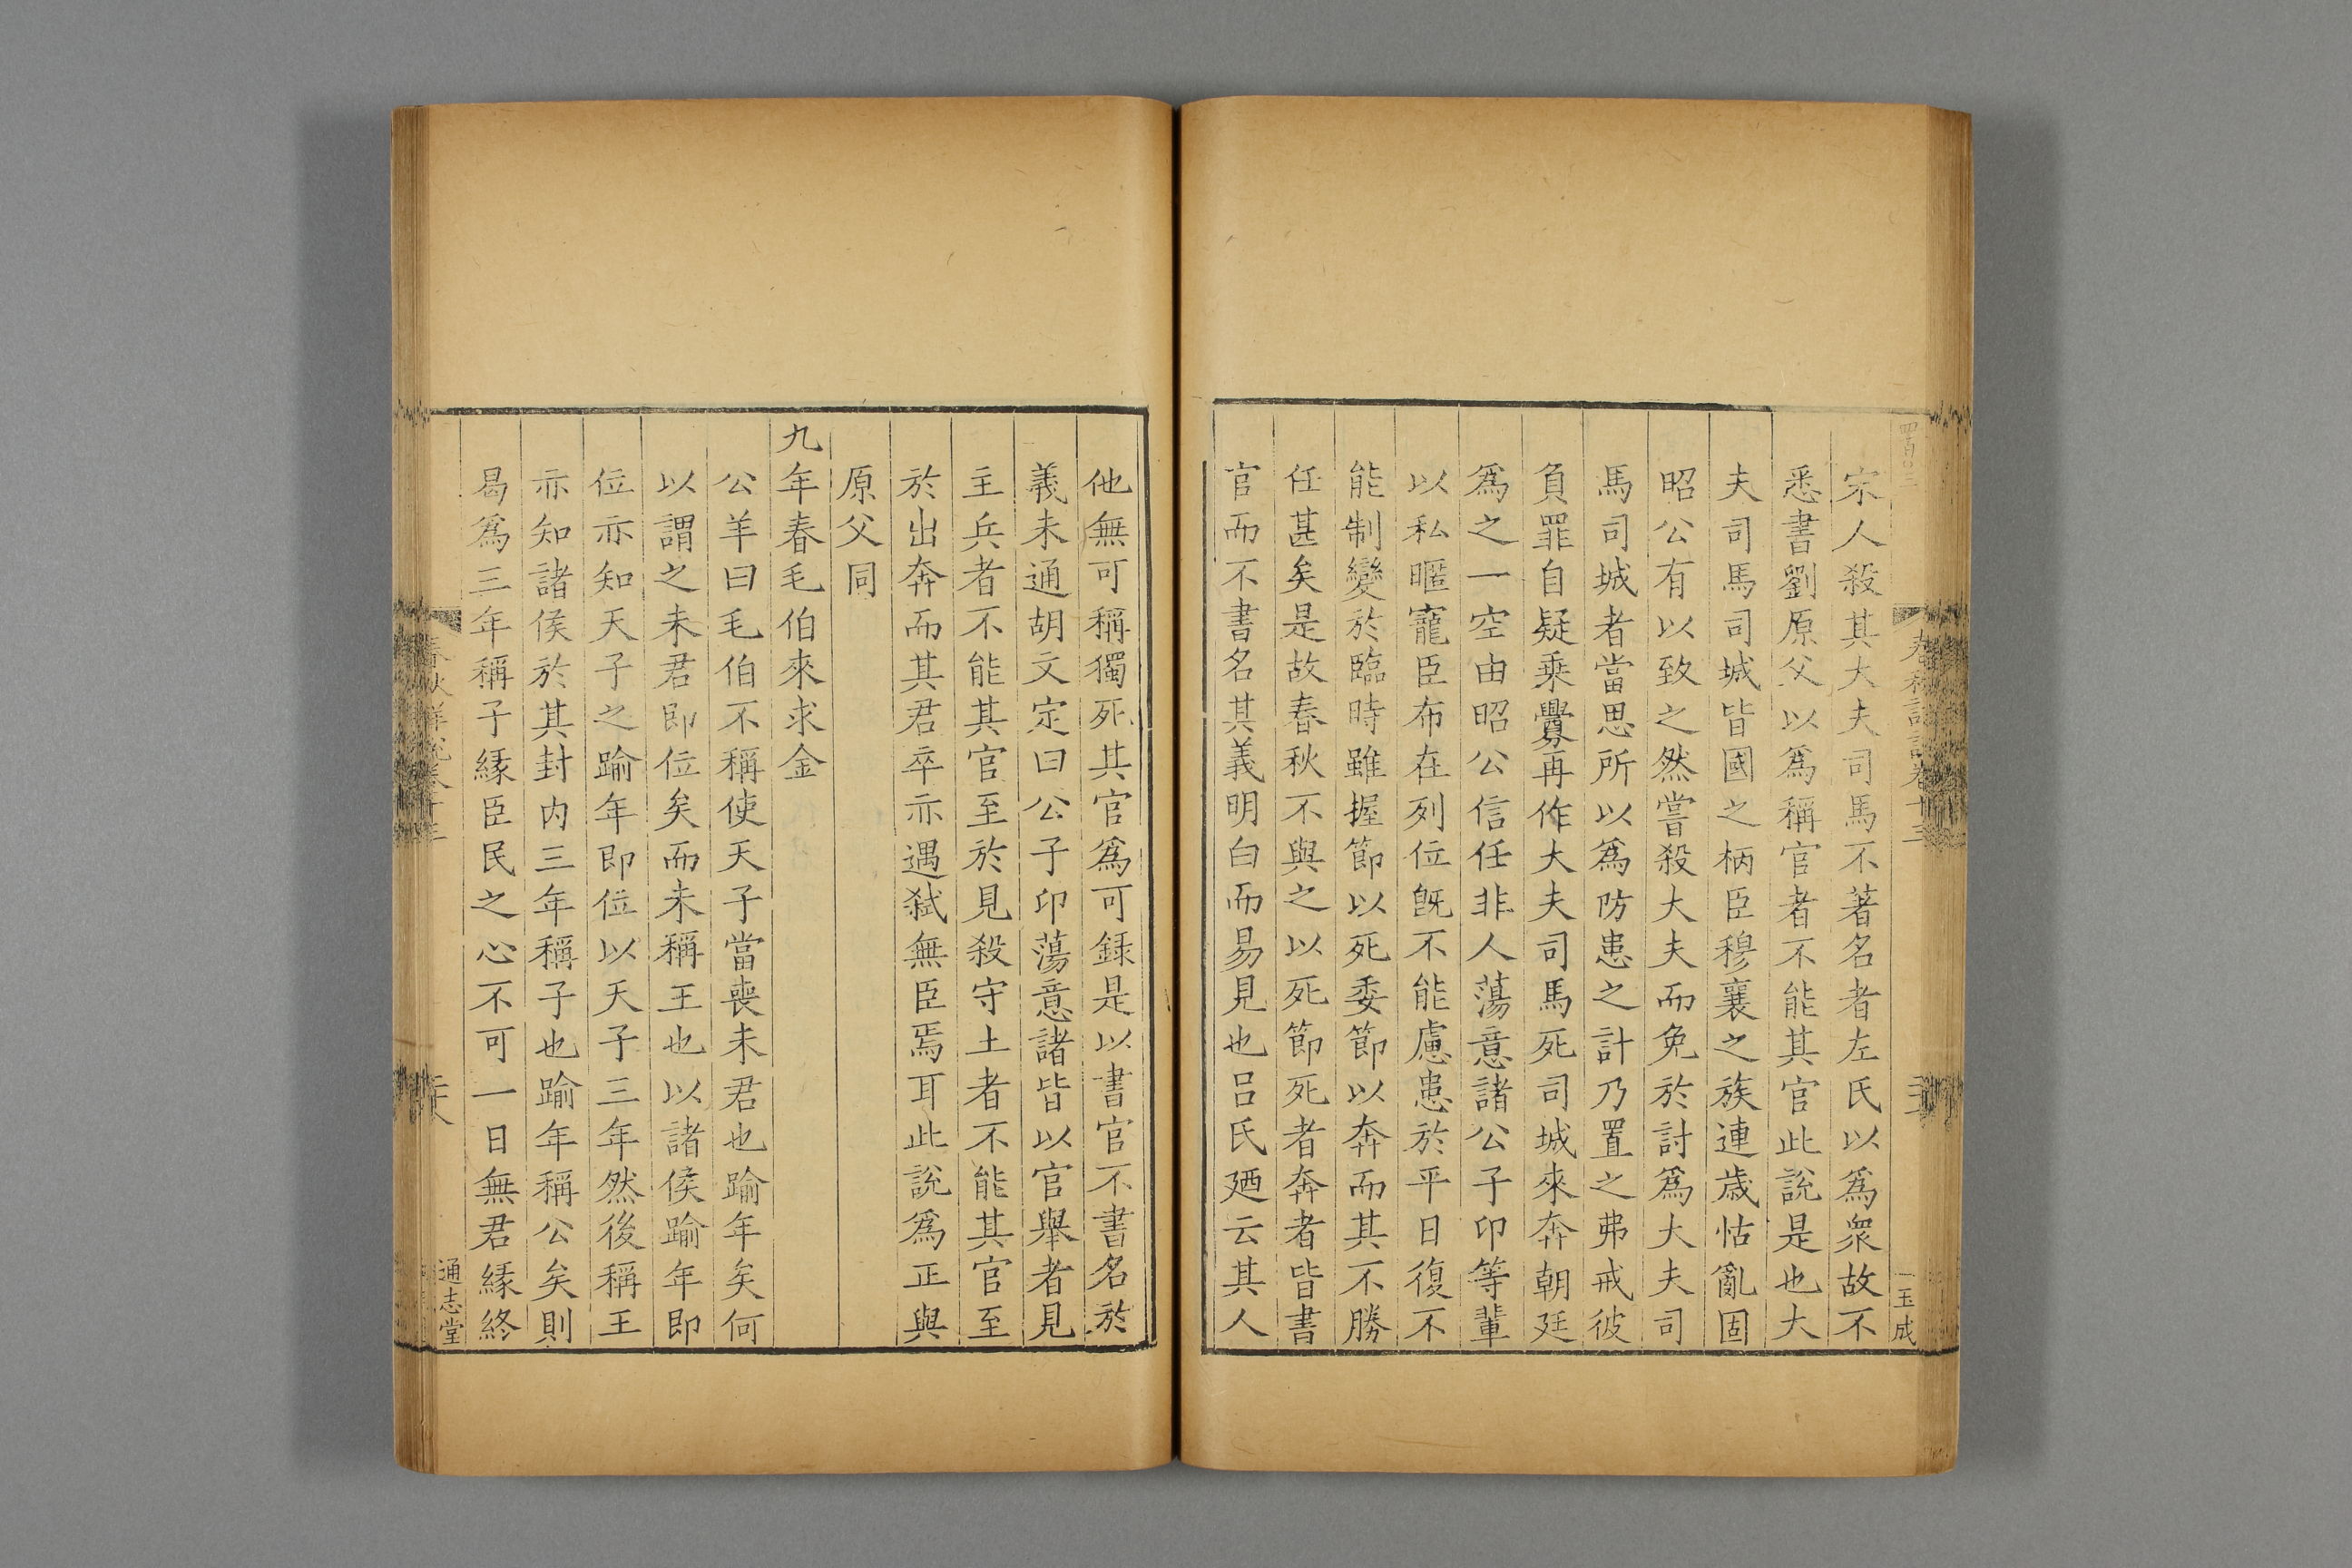 宋人殺其大夫司馬不著名者左氏以爲衆故不
悉書劉原父以爲稱官者不能其官此說是也大
夫司馬司城皆國之柄臣穆襄之族連歲怙亂固
昭公有以致之然嘗殺大夫而免於討爲大夫司
馬司城者當思所以爲防患之計乃置之弗戒彼
負罪自疑乗釁再作大夫司馬死司城來奔朝廷
爲之一空由昭公信任非人蕩意諸公子卬等輩
以私暱寵臣布在列位旣不能慮患於平日復不
能制變於臨時雖握節以死委節以奔而其不勝
任甚矣是故春秋不與之以死節死者奔者皆書
官而不書名其義明白而易見也吕氏廼云其人
玉成
他無可稱獨死其官爲可録是以書官不書名於
義未通胡文定曰公子卬蕩意諸皆以官舉者見
主兵者不能其官至於見殺守土者不能其官至
於出奔而其君卒亦遇弑無臣焉耳此說爲正與
原父同
九年春毛伯來求金
公羊曰毛伯不稱使天子當喪未君也踰年矣何
以謂之未君即位矣而未稱王也以諸侯踰年即
位亦知天子之踰年即位以天子三年然後稱王
亦知諸侯於其封内三年稱子也踰年稱公矣則
曷爲三年稱子緣臣民之心不可一日無君緣終
通志堂